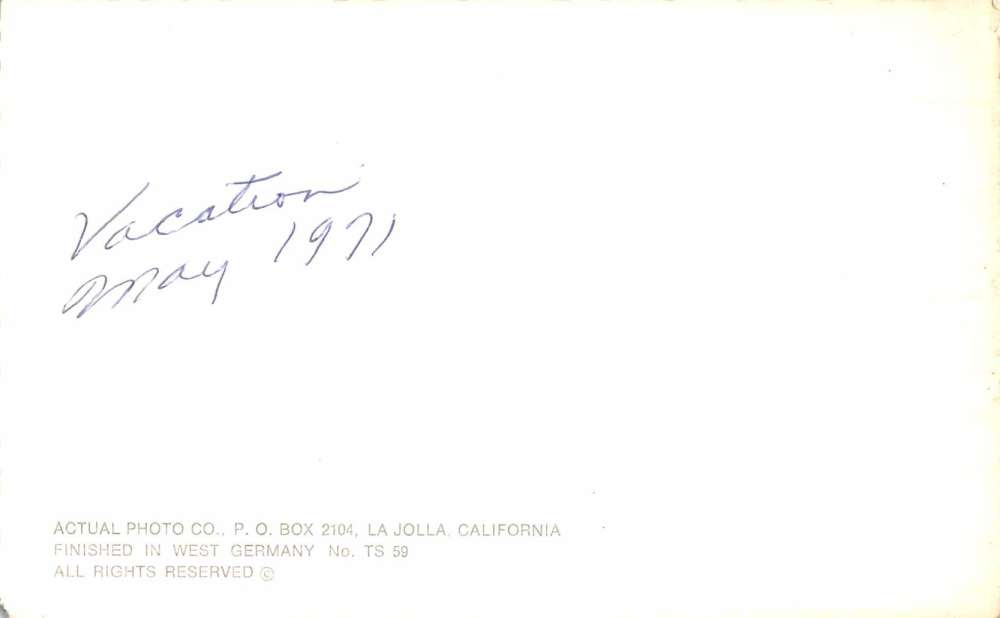 Vacation
May 1971
ACTUAL PHOTO CO., P. O. BOX 2104, LA JOLLA, CALIFORNIA
FINISHED IN WEST GERMANY No. TS 59
ALL RIGHTS RESERVED ©